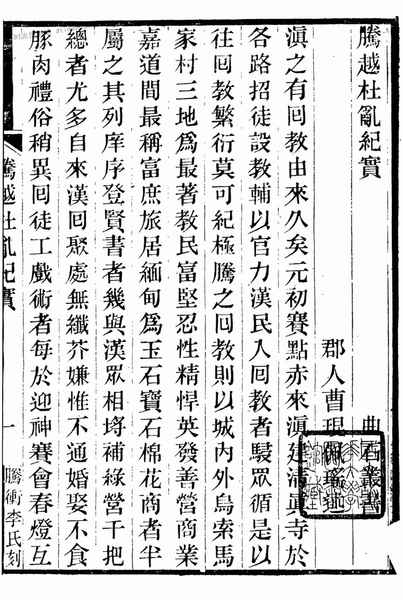 騰越杜亂紀實
曲石叢書
郡人曹琨
滇之有回教由來久矣元初賽點赤來滇建清眞寺於
各路招徒設教輔以官力漢民入回教者駸眾循是以
往回教繁衍莫可紀極騰之回教則以城內外烏索馬
家村三地爲最著教民富堅忍性精悍英發善營商業
嘉道間最稱富庶旅居緬甸爲玉石寶石棉花商者半
屬之其列庠序登賢書者幾與漢眾相埒補綠營千把
總者尤多自來漢回聚處無纖芥嫌惟不通婚娶不食
豚肉禮俗稍異回徒工戲術者每於迎神賽會春燈互
騰越杜亂紀實
一
騰衝李氏刻